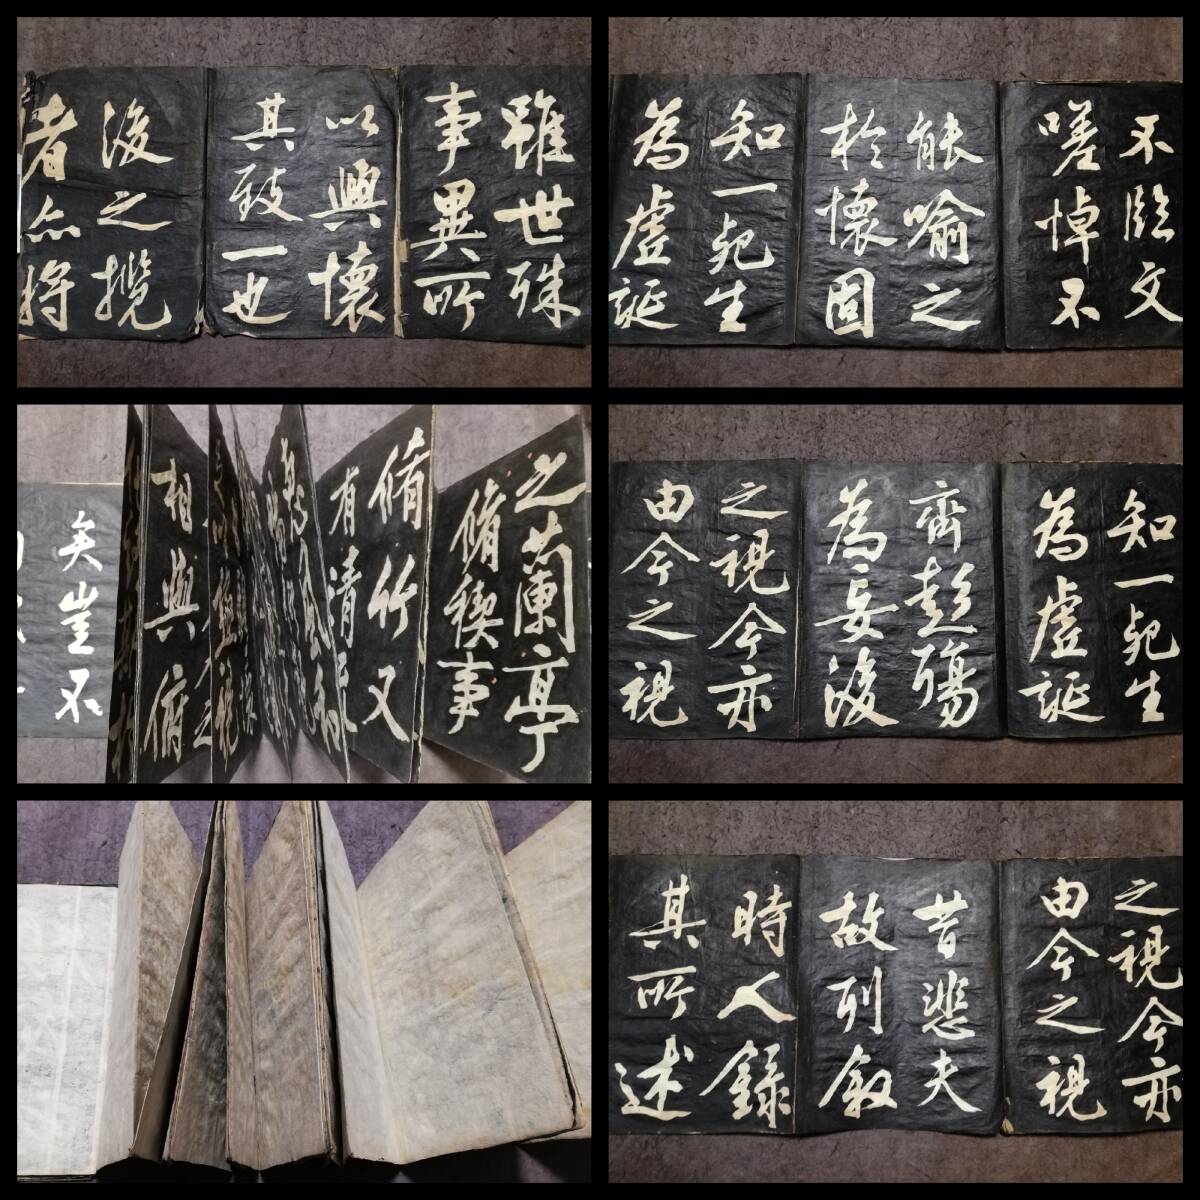 雖世殊
事異所
以興懷
其致一也
後之攬
者亦將
不臨文
嗟悼不
能喻之
於懷固
知一死生
為虛誕
之蘭亭
脩稧事
脩竹又
有清
相與俯
矣豈不
知一死生
為虛誕
齊彭殤
為妄後
之視今亦
由今之視
之視今亦
由今之視
昔悲夫
故列叙
時人錄
其所述